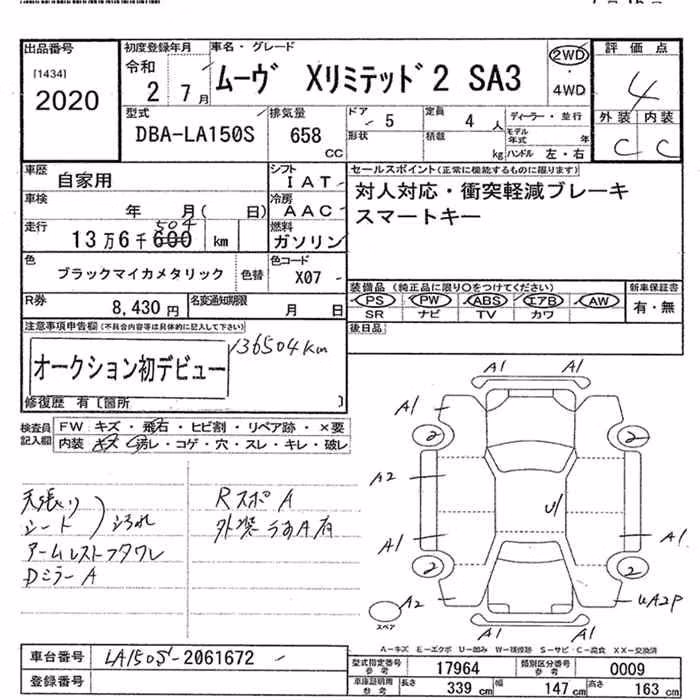 出品番号
[1434]
2020
初度登録年月
令和
2 7月
車名・グレード
ムーヴ Xリミテッド2 SA3
2WD
・
4WD
評価点
4
外装 内装
C C
型式
DBA-LA150S
排気量
658
CC
ドア
5
形状
定員
4人
積載
kg
ディーラー・並行
モデル年式 年
ハンドル 左・右
車歴
自家用
シフト
IAT
車検
年 月( 日)
冷房
AAC
走行
504
13万6千600 km
燃料
ガソリン
色
ブラックマイカメタリック
色替
色コード
X07
R券
8,430円
名変通知期限
月 日
セールスポイント(正常に機能するものに限ります)
対人対応・衝突軽減ブレーキ
スマートキー
装備品(純正品に限り○をつけてください)
PS PW ABS エアB AW
SR ナビ TV カワ
新車保証書
有・無
後日品
注意事項申告欄(不具合内容等は具体的に記入して下さい)
136504km
オークション初デビュー
修復歴 有〔箇所 〕
検査員記入欄
FW キズ・飛石・ヒビ割・リペア跡・×要
内装 キズ・汚レ・コゲ・穴・スレ・キレ・破レ
天張り
シート
汚れ
アームレストフタワレ
Dミラー A
RスポA
外装うすA有
A1 A1
A1
2 2
A2
U1
A1 A1
2 2
A2
UA2P
スペア
A1 A1
A-キズ E-エクボ U-凹み W-補修跡 S-サビ C-腐食 XX-交換済
車台番号
LA150S-2061672
登録番号
型式指定番号
参考
17964
類別区分番号
参考
0009
車庫証明用
参考
長さ
339 cm
幅
147 cm
高さ
163 cm